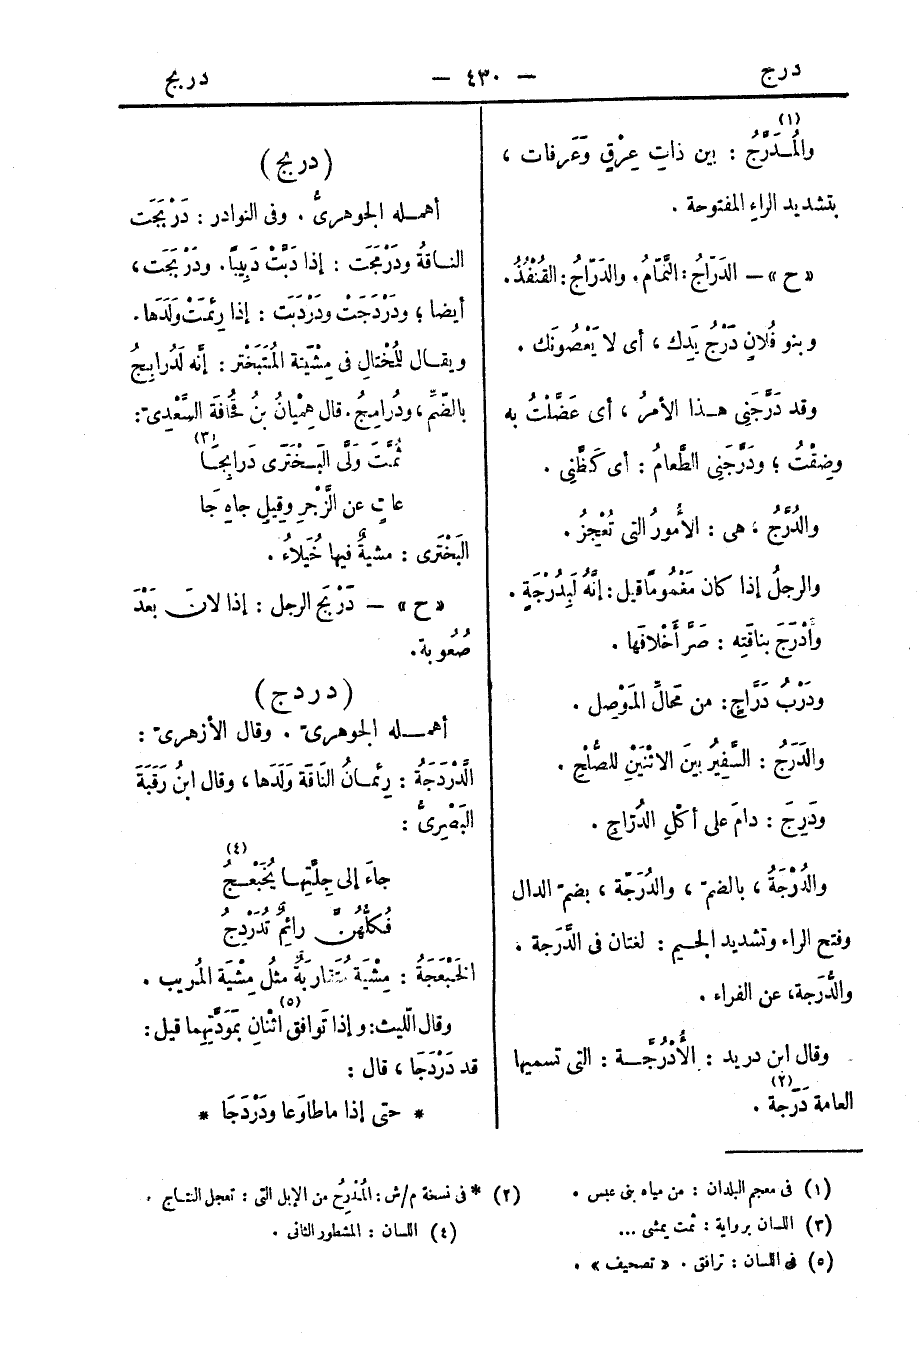 درج
— ٤٣٠ —
دربج
(١)
والمُدَرَّجُ : بين ذاتِ عِرْقٍ وَعَرفات ،
بتشديد الراءِ المفتوحة .
«ح» — الدَرّاجُ : النَّمّامُ . والدَرّاجُ : القُنْفُذُ .
وبنو فُلانٍ دَرْجُ يَدِك ، أى لا يَعْصُونَك .
وقد دَرَّجَنِى هـذا الأمرُ ، أى عَضَّلْتُ به
وضِقْتُ ؛ ودَرَّجَنِى الطَّعامُ : أى كَظَّنِى .
والدُرَّجُ ، هى : الأُمورُ التى تُعْجِزُ .
والرجلُ إذا كان مَغْمُومًا قيل : إنَّهُ لَبِدُرْجَةٍ .
وأَدْرَجَ بناقَتِه : صَرَّ أَخْلافَها .
ودَرْبُ دَرَّاجٍ : من مَحالِّ المَوْصِل .
والدَرَجُ : السَّفِيرُ بينَ الاثْنَيْنِ للصُّلْحِ .
ودَرِجَ : دامَ على أكْلِ الدُرّاجِ .
والدُرْجَةُ ، بالضمّ ، والدُرَجّة ، بضمّ الدال
وفتح الراء وتشديد الجيم : لغتان فى الدَّرَجة .
والدُّرَجة، عن الفراء .
وقال ابن دريد : الأُدْرُجَّــة : التى تسميها
(٢)
العامة دَرَجة .
(دربج)
أهمــله الجوهرىُّ . وفى النوادر : دَرْبَجَت
الناقةُ ودَرْمَجَت : إذا دَبَّتْ دَبِيبًا . ودَرْبَجَت ،
أيضا ؛ ودَرْدَجَتْ ودَرْدَبَت : إذا رئمَتْ وَلَدَها .
ويقـال للمُختالِ فى مِشْيَتة المُتَبَختر : أنّه لَدُرابِجُ
بالضّمّ ، ودُرامِجُ . قال هِمْيانُ بنُ قُحافَة السَّعْدِىّ :
(٣)
ثُمَّتَ وَلَّى البَـخْتَرَى دَرابِجَـا
عاتٍ عن الزَّجْرِ وقِيلٍ جاهِ جَا
البَخْتَرَى : مشيةٌ فيها خُيَلاءُ .
«ح» — دَرْبَج الرجل : إذا لانَ بَعْدَ
صُعُوبة .
(دردج)
أهمــله الجوهرىّ . وقال الأزهرىّ :
الدَّرْدَجَةُ : رِئْمـانُ النَاقة وَلَدَها ، وقال ابنُ رَقَبَةَ
البَصْرِىُّ :
(٤)
جاءَ إلى جِلَّتِهـا يُخَبْعـجُ
فكُلُّهُنّ رائِمٌ تُدَرْدِجُ
الخَبْعَجَةُ : مِشْيَةٌ مُتَقارِبَةٌ مثلُ مِشْيَةِ المُريب .
(٥)
وقال اللّيث : وإذا تَوافق اثْنانِ بمَوَدَّتِهما قيل :
قد دَرْدَجَا ، قال :
* حتى إذا ما طاوَعا ودَرْدَجَا *
(١) فى معجم البلدان : من مياه بنى عبس .
(٢) * فى نسخة م/ش : المُدْرِجُ من الإبل التى : تعجل النتـاج .
(٣) اللسان برواية : ثمت يمشى ...
(٤) اللسان : المشطور الثانى .
(٥) فى اللسان : ترافق . « تصحيف » .